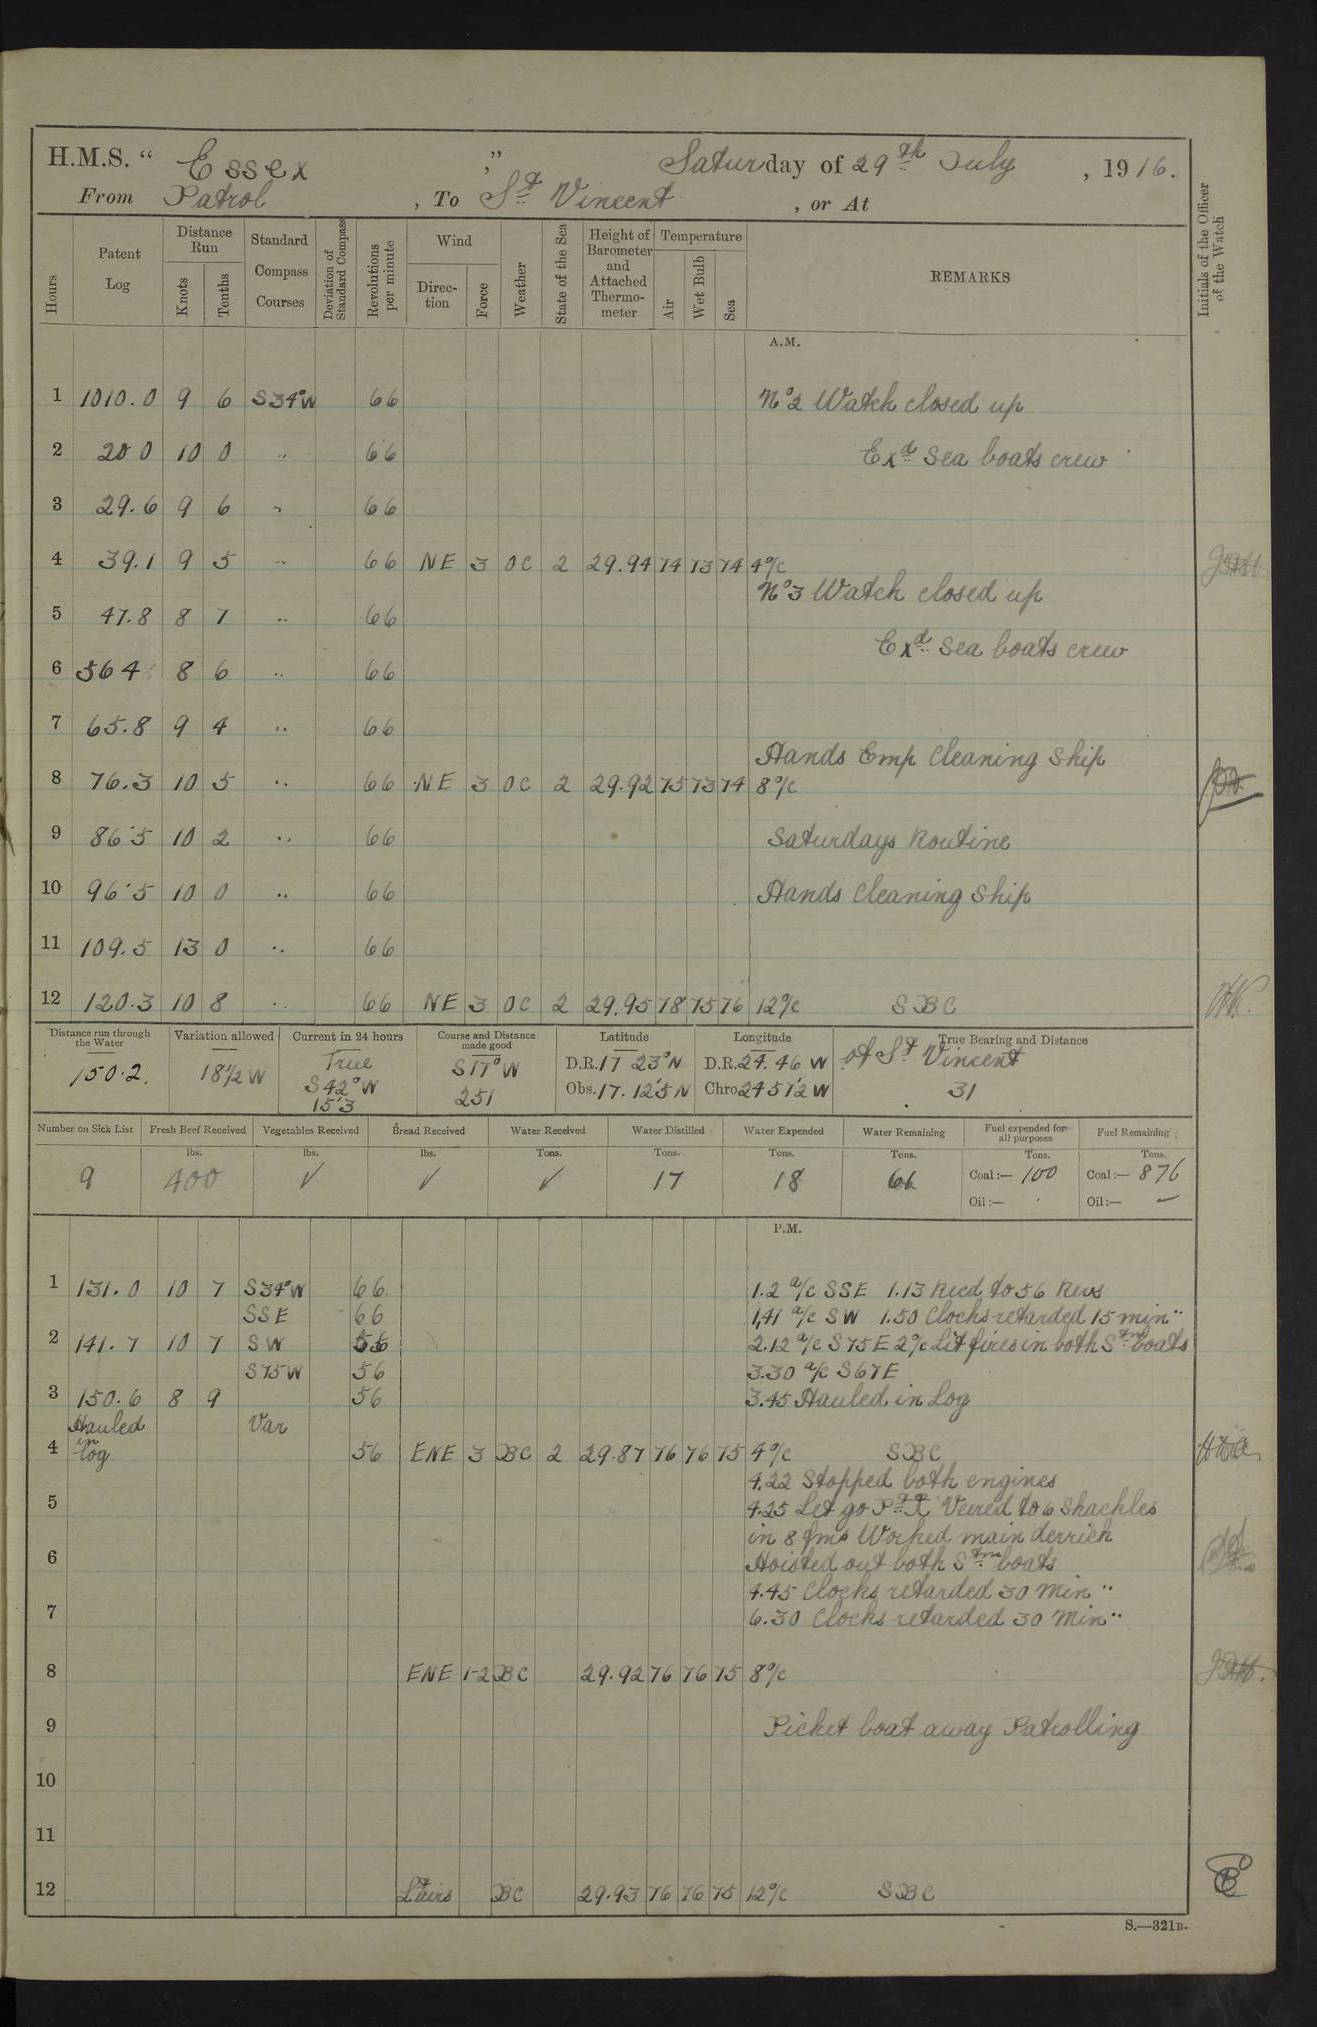 H.M.S. “ Essex ,” Saturday of 29th July , 1916.
From Patrol , To St Vincent , or At
Hours
Patent Log
Distance Run
Knots
Tenths
Standard Compass Courses
Deviation of Standard Compass
Revolutions per minute
Wind
Direction
Force
Weather
State of the Sea
Height of Barometer and Attached Thermometer
Temperature
Air
Wet Bulb
Sea
REMARKS
Initials of the Officer of the Watch
A.M.
1 1010.0 9 6 S34°W 66 No 2 Watch closed up
2 20 0 10 0 " 66 Exd Sea boats crew
3 29.6 9 6 " 66
4 39.1 9 5 " 66 NE 3 OC 2 29.94 74 73 74 4 o/c
No 3 Watch closed up
5 47.8 8 7 " 66
Exd Sea boats crew
6 56 4 8 6 " 66
7 65.8 9 4 " 66
Hands Emp Cleaning Ship
8 76.3 10 5 " 66 NE 3 OC 2 29.92 75 73 74 8 o/c
9 86.5 10 2 " 66 Saturdays Routine
10 96.5 10 0 " 66 Hands Cleaning Ship
11 109.5 13 0 " 66
12 120.3 10 8 " 66 NE 3 OC 2 29.95 78 75 76 12 o/c SBC
Distance run through the Water
150.2.
Variation allowed
18½ W
Current in 24 hours
True
S42°W
15.3
Course and Distance made good
S17°W
251
Latitude
D.R. 17 23°N
Obs. 17. 12.5 N
Longitude
D.R. 24. 46 W
Chro 24 51'2 W
True Bearing and Distance
of St Vincent
31
Number on Sick List
9
Fresh Beef Received
lbs.
400
Vegetables Received
lbs.
✓
Bread Received
lbs.
✓
Water Received
Tons.
✓
Water Distilled
Tons.
17
Water Expended
Tons.
18
Water Remaining
Tons.
66
Fuel expended for all purposes
Tons.
Coal:— 100
Oil:—
Fuel Remaining
Tons.
Coal:— 876
Oil:— —
P.M.
1 131.0 10 7 S34°W 66 1.2 a/c SSE 1.13 Reed to 56 Revs
SSE 66 1.41 a/c SW 1.50 Clocks retarded 15 min"
2 141.7 10 7 SW 56 2.12 a/c S75E 2 o/c Lit fires in both Stm boats
S75W 56 3.30 a/c S67E
3 150.6 8 9 56 3.45 Hauled in Log
Hauled Var
4 in log 56 ENE 3 BC 2 29.87 76 76 75 4 o/c SBC
4.22 Stopped both engines
5 4.25 Let go Pt Veered to 6 Shackles
in 8 fms Worked main derrick
6 Hoisted out both Stm boats
4.45 Clocks retarded 30 Min"
7 6.30 Clocks retarded 30 Min"
8 ENE 1-2 BC 29.92 76 76 75 8 o/c
9 Picket boat away Patrolling
10
11
12 Lt airs BC 29.93 76 76 75 12 o/c SBC
S.—321B.